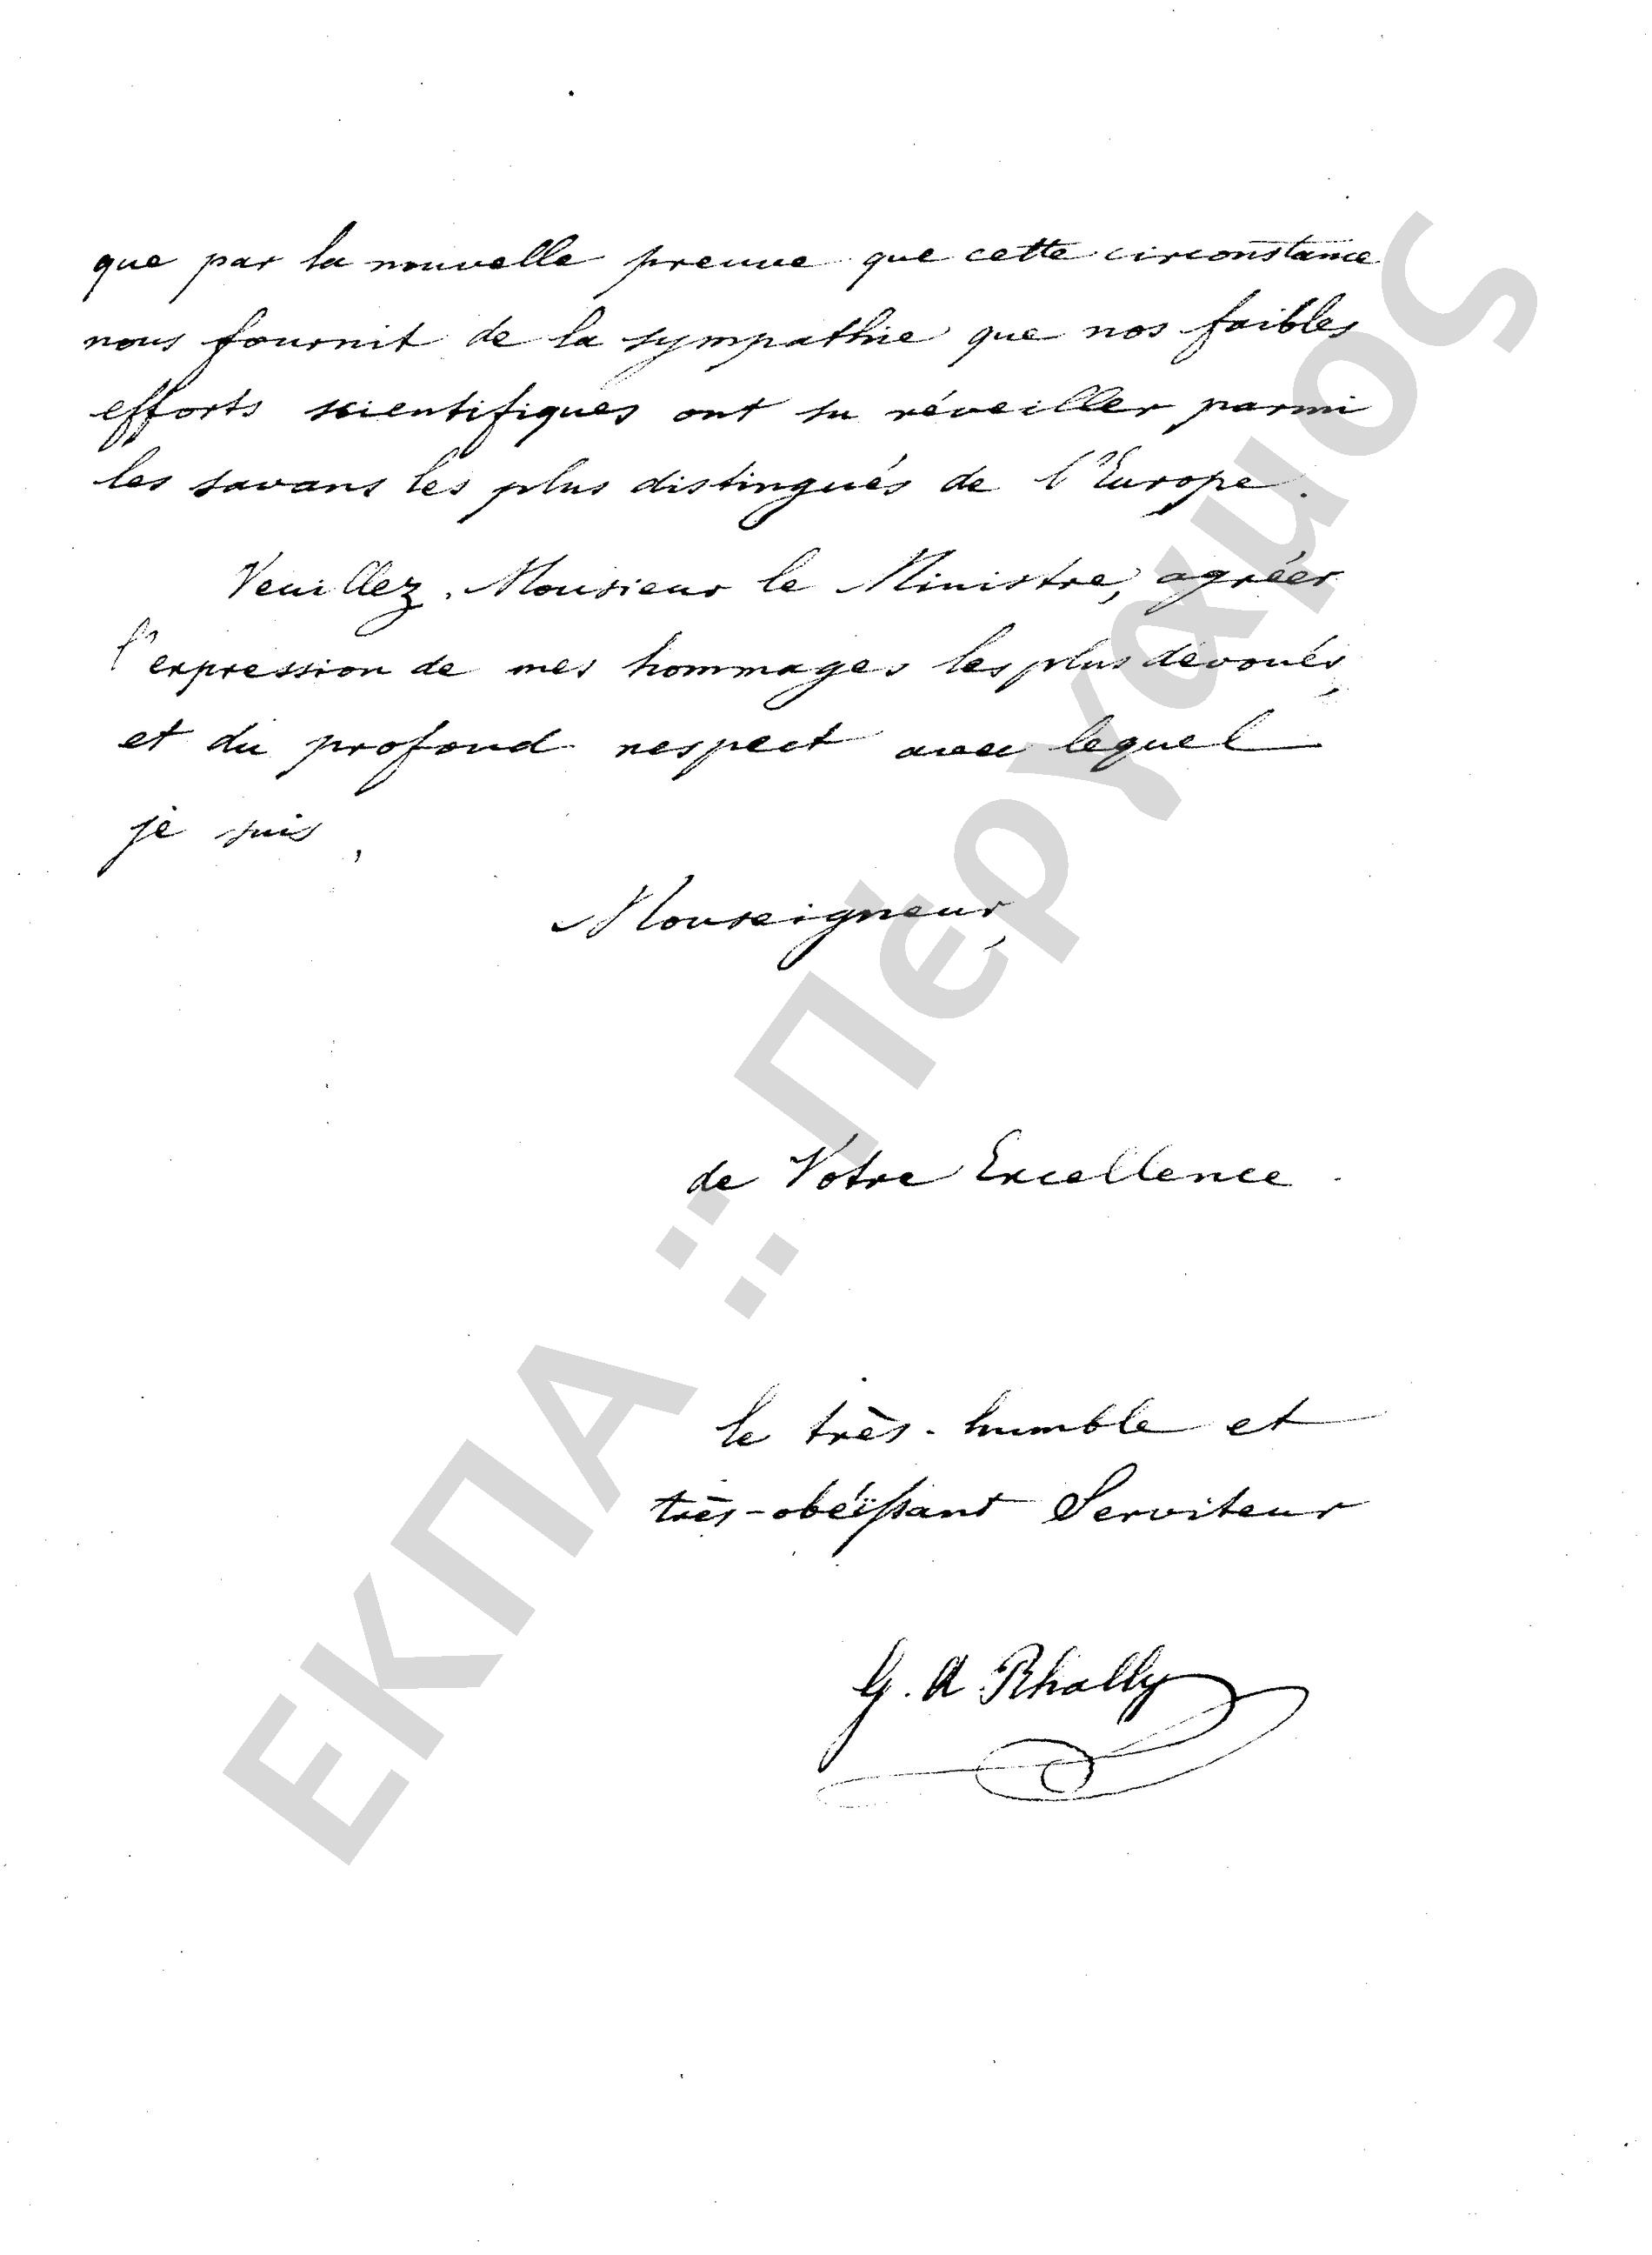 que par la nouvelle preuve que cette circonstance
nous fournit de la sympathie que nos faibles
efforts scientifiques ont su réveiller parmi
les savans les plus distingués de l'Europe.
Veuillez, Monsieur le Ministre, agréer
l'expression de mes hommages les plus dévoués,
et du profond respect avec lequel
je suis,
Monseigneur,
de Votre Excellence
le très-humble et
très-obéïssant Serviteur
G. A Rhally
ΕΚΠΑ :: Πέργαμος